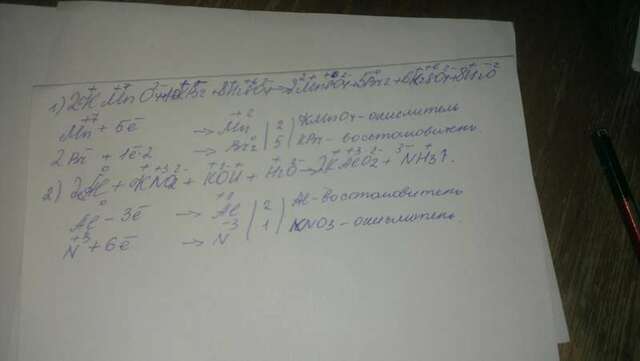 1) 2KMnO4 + 10KBr + 8H2SO4 → 2MnSO4 + 5Br2 + 6K2SO4 + 8H2O
Mn + 5e → Mn | 2 | KMnO4 - окислитель
2Br + 1e·2 → Br2 | 5 | KBr - восстановитель
2) 2Al + KNO2 + KOH + H2O → 2KAlO2 + NH3↑.
Al - 3e → Al | 2 | Al - восстановитель
N + 6e → N | 1 | KNO3 - окислитель.